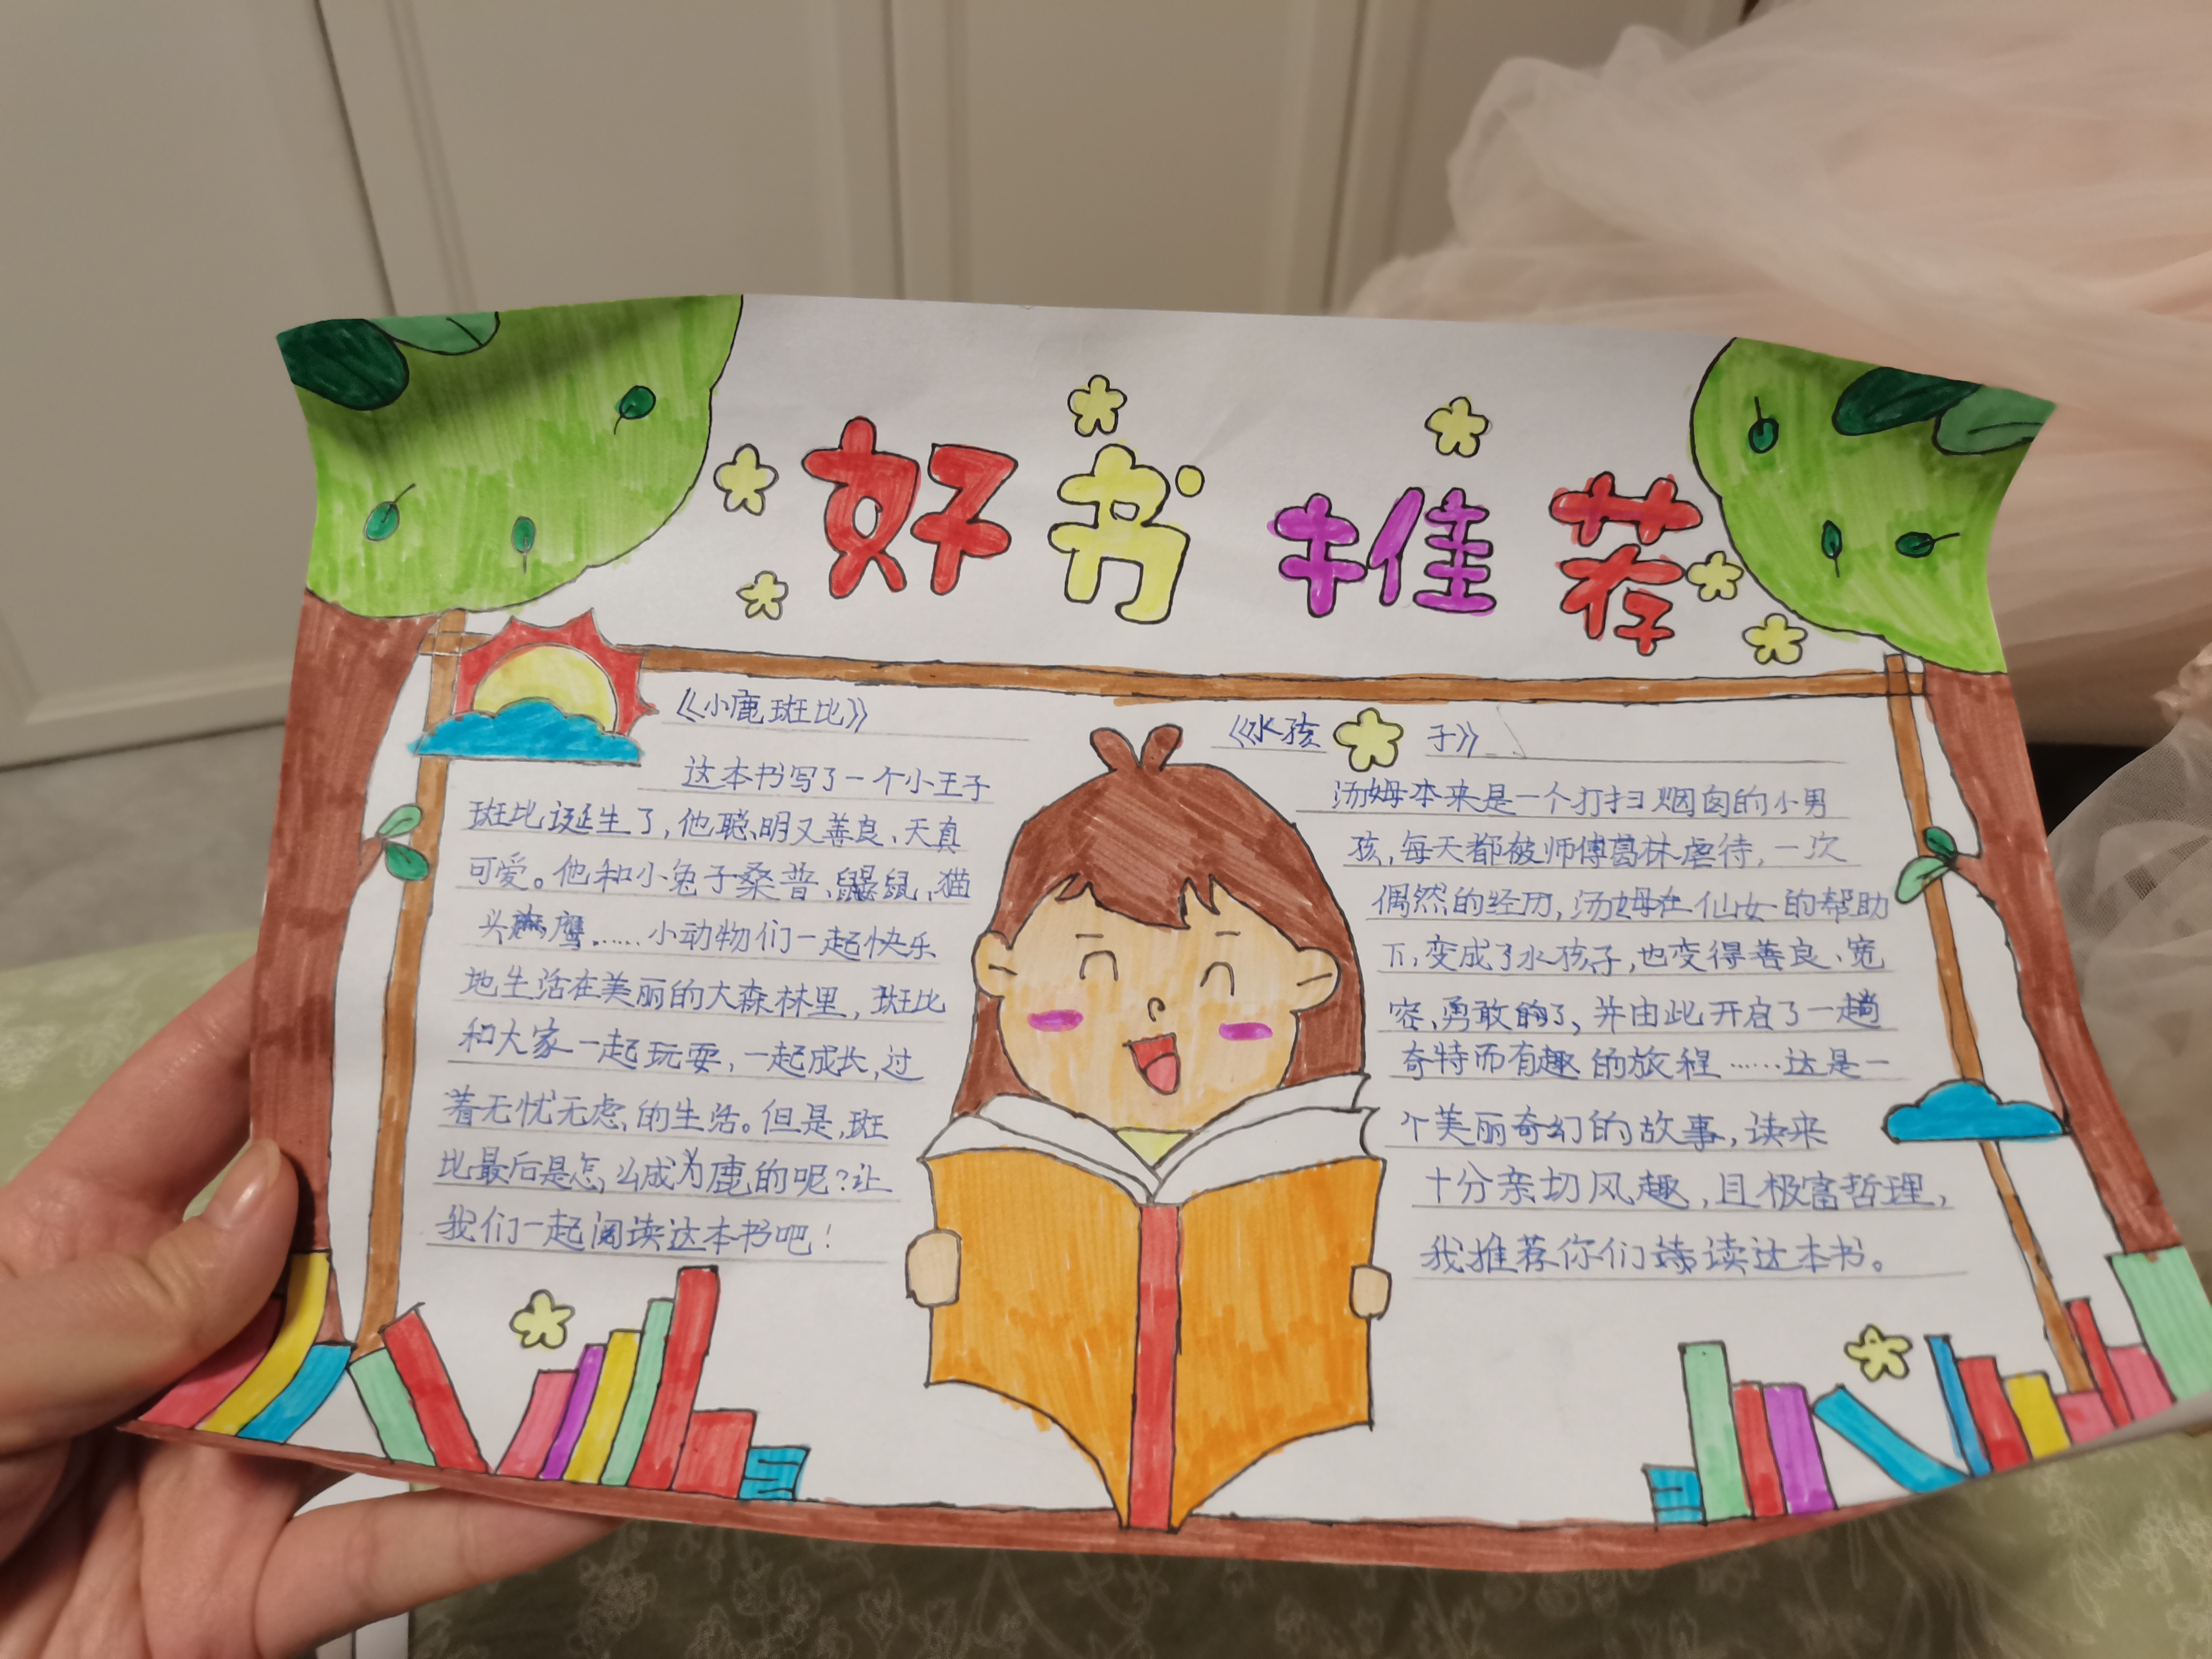 好书推荐
《小鹿斑比》
这本书写了一个小王子
斑比诞生了,他聪明又善良、天真
可爱。他和小兔子桑普、鼹鼠、猫
头鹰……小动物们一起快乐
地生活在美丽的大森林里,斑比
和大家一起玩耍,一起成长,过
着无忧无虑的生活。但是,斑
比最后是怎么成为鹿的呢?让
我们一起阅读这本书吧!
《水孩子》
汤姆本来是一个打扫烟囱的小男
孩,每天都被师傅葛林虐待,一次
偶然的经历,汤姆在仙女的帮助
下,变成了水孩子,也变得善良、宽
容、勇敢的了,并由此开启了一趟
奇特而有趣的旅程……这是一
个美丽奇幻的故事,读来
十分亲切风趣,且极富哲理,
我推荐你们读这本书。